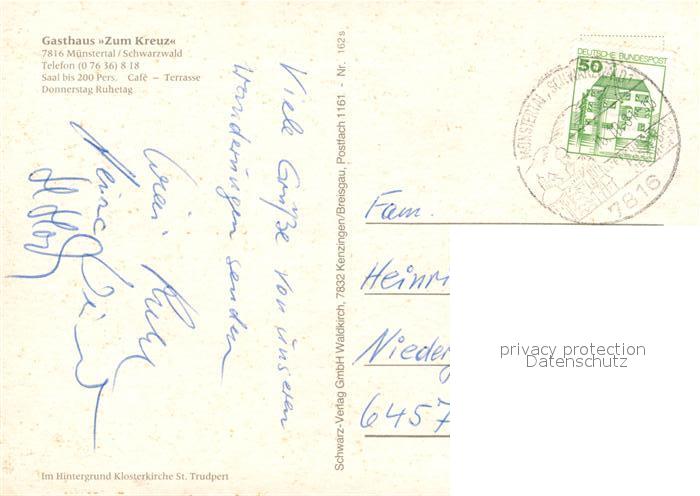 Gasthaus »Zum Kreuz«
7816 Münstertal / Schwarzwald
Telefon (0 76 36) 8 18
Saal bis 200 Pers. Café – Terrasse
Donnerstag Ruhetag
Viele Grüße von unseren
Wanderungen senden
Im Hintergrund Klosterkirche St. Trudpert
Schwarz-Verlag GmbH Waldkirch, 7832 Kenzingen/Breisgau, Postfach 1161 - Nr. 162 s
DEUTSCHE BUNDESPOST
50
MÜNSTERTAL, SCHWARZWALD
7816
Fam.
Heinri
Nieder
6457
privacy protection
Datenschutz